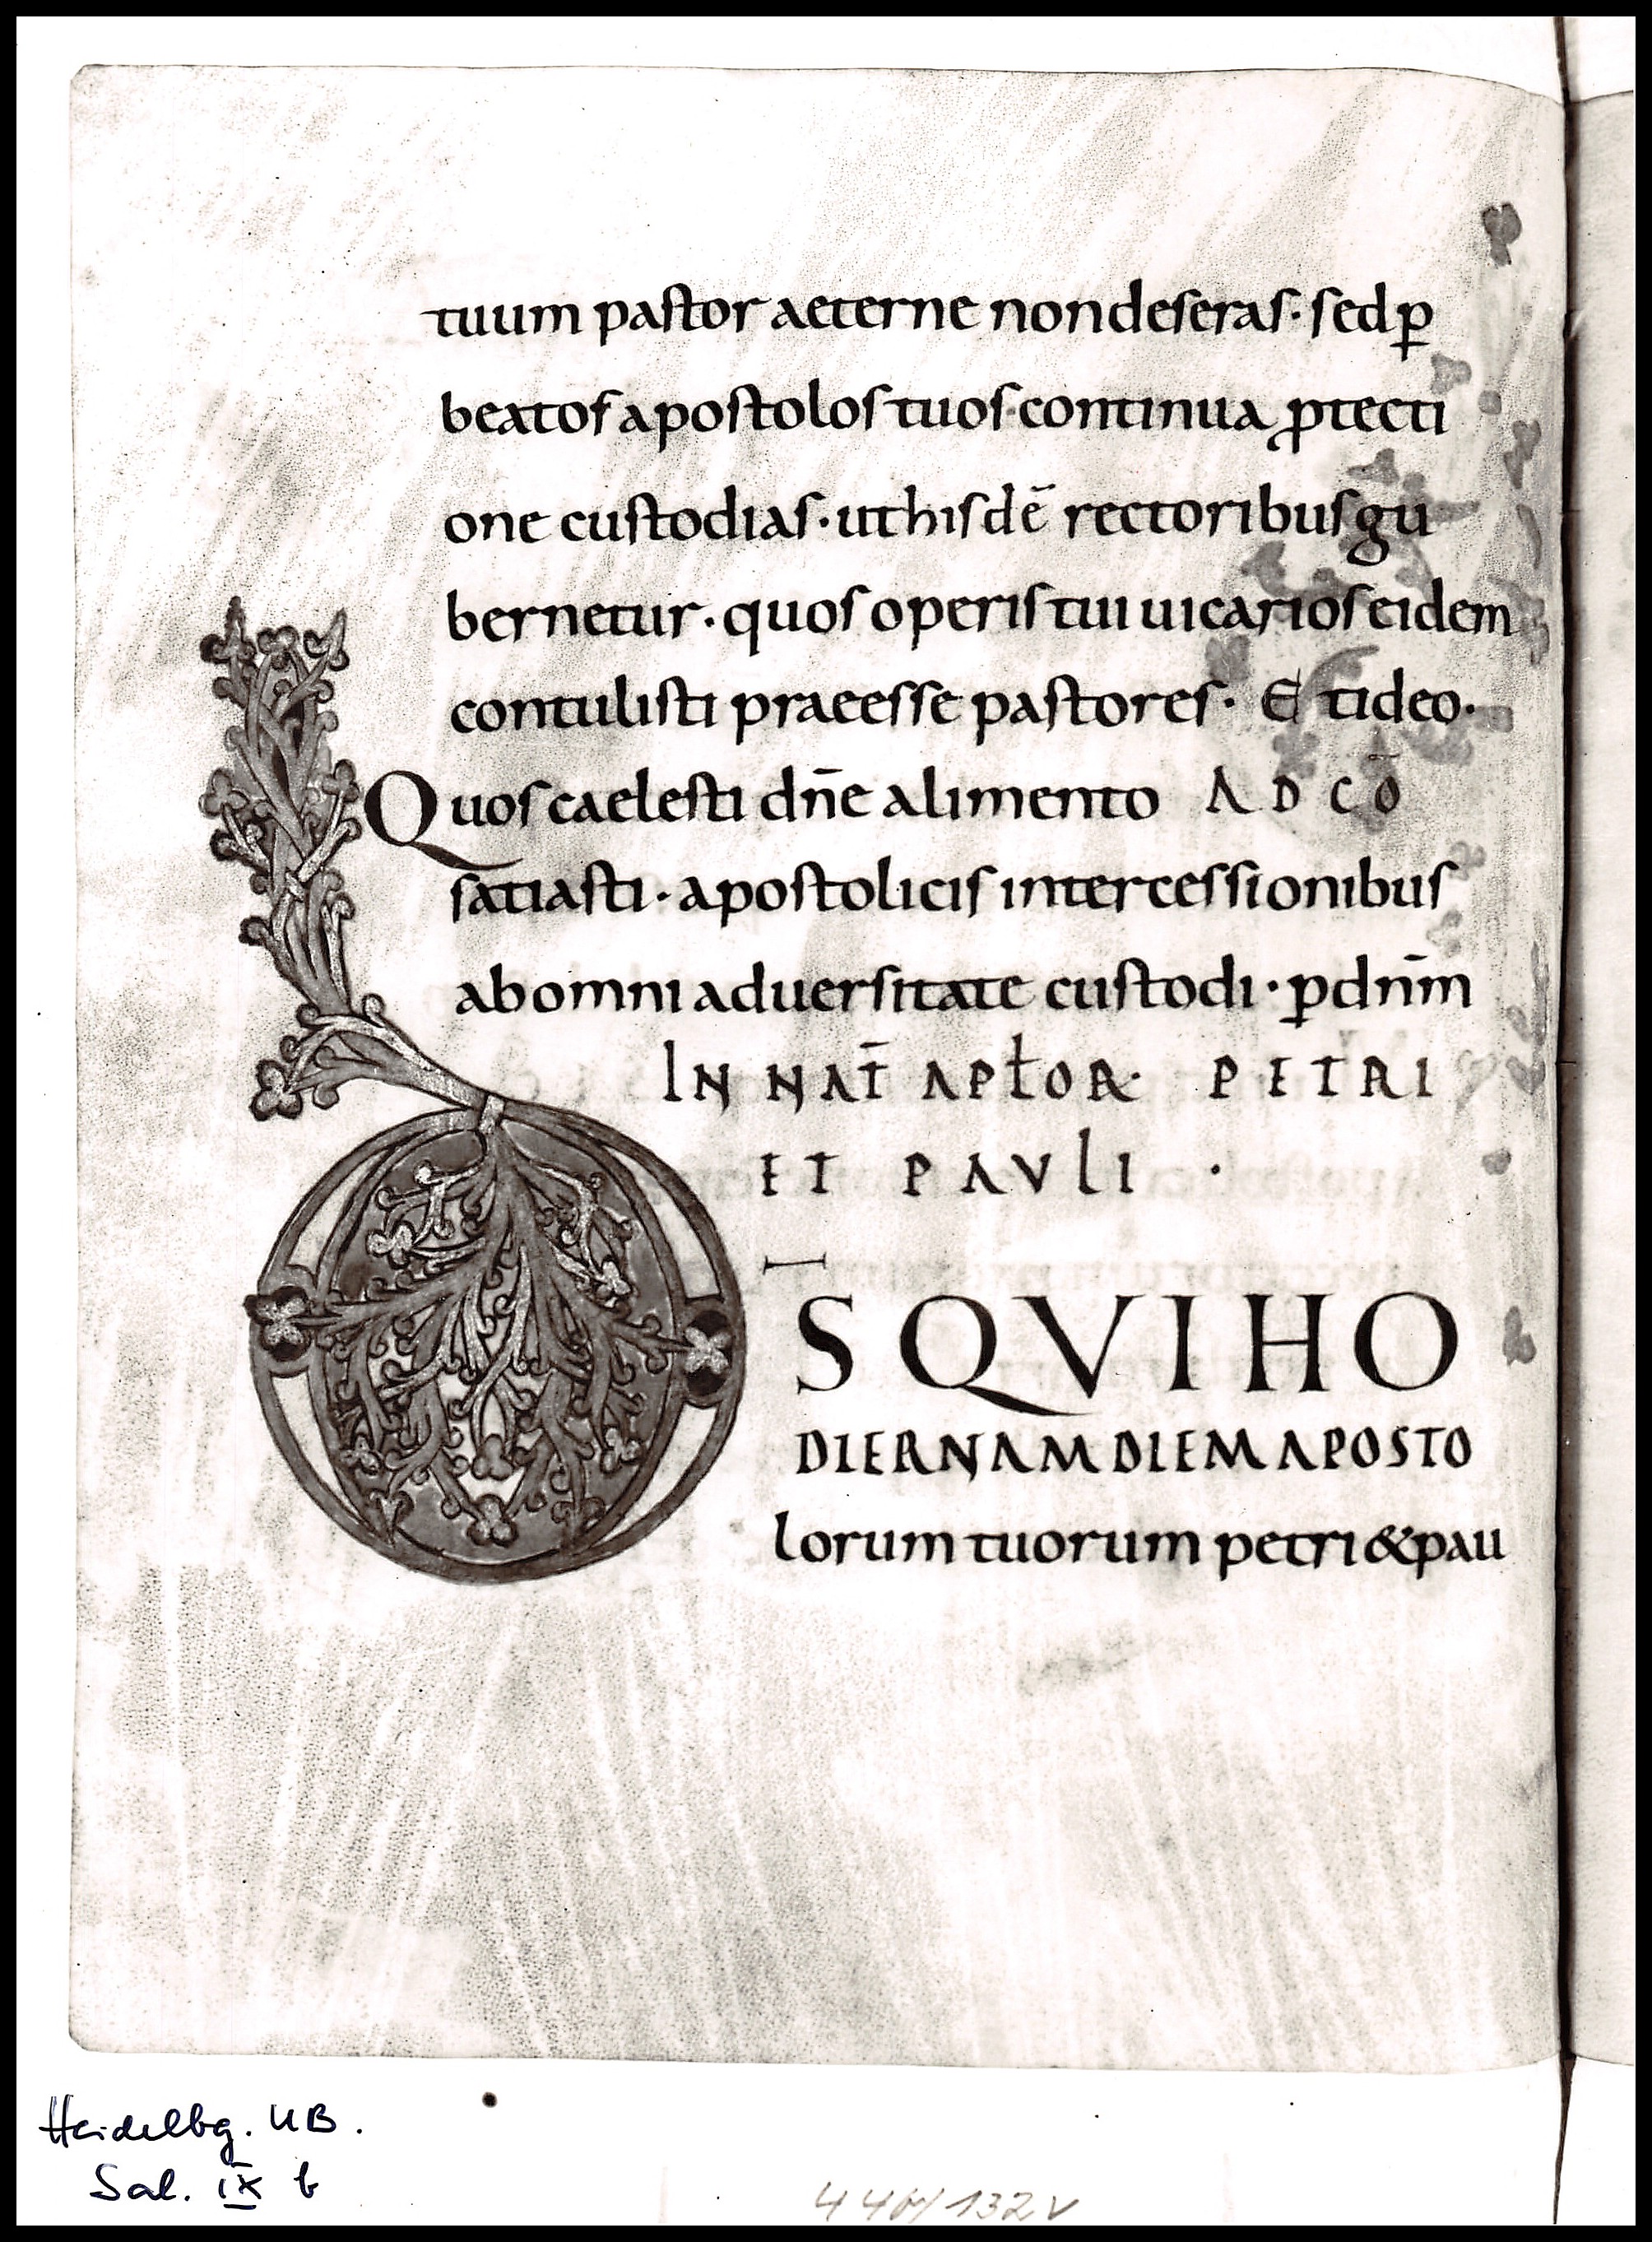 tuum pastor aeterne nondeseras· sedꝑ
beatos apostolos tuos continua ꝓtecti
one custodias· uthisdē rectoribus gu
bernetur· quos operis tui uicarios eidem
contulisti praeesse pastores· Etideo·
Quos caelesti dn̄e alimento ADCŌ
satiasti· apostolicis intercessionibus
abomni aduersitate custodi· ꝑdnm̄
IN NAT̄ APŁOR· PETRI
ET PAVLI ·
D̄S QVI HO
DIERNAM DIEM APOSTO
lorum tuorum petri & pau
Heidelbg. UB.
Sal. IX b
132v